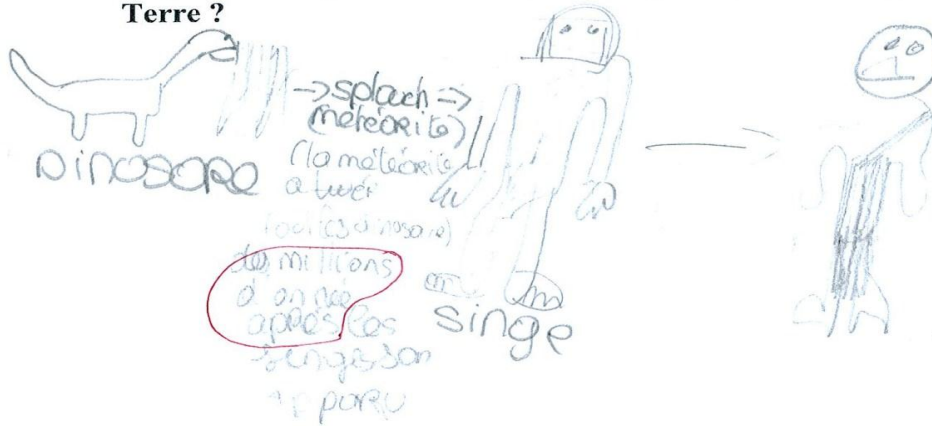 Terre ?
→ splach ⇒
(météorite)
Dinosore
(la météorite
a tuér
tout les dinosore)
des millions
d'année
après les
singe son
apparu
singe